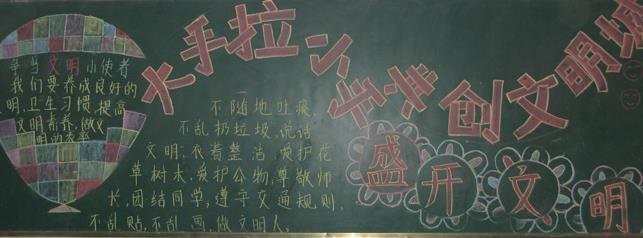 大手拉小手共创文明城
争当文明小使者
我们要养成良好的
明,卫生习惯,提高
文明素养,做文
明的农家
不随地吐痰,
不乱扔垃圾,说话
文明;衣着整洁,爱护花
草树木,爱护公物,尊敬师
长,团结同学,遵守交通规则,
不乱贴,不乱画,做文明人。
盛开文明